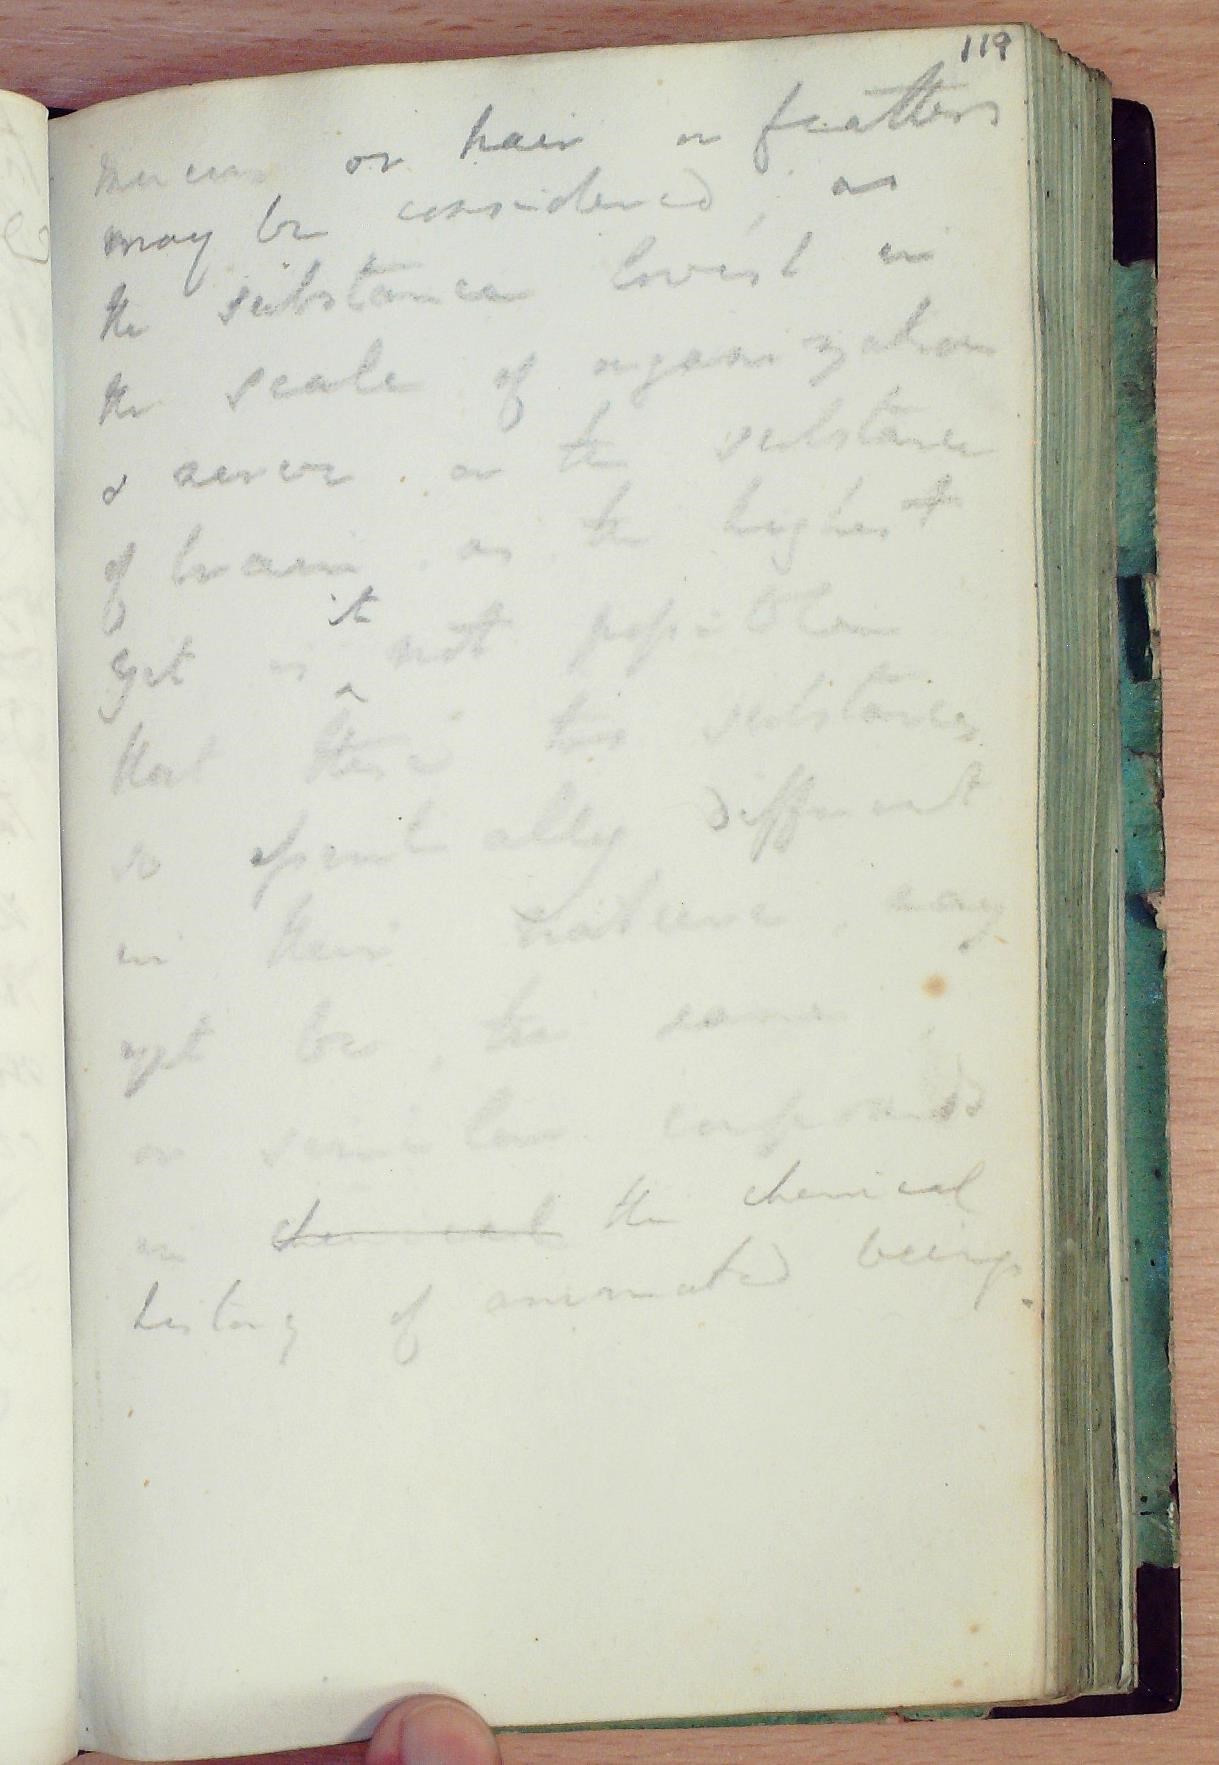 119
mucus or hair or feathers
may be considered, as
the substance lowest in
the scale of organization
& nerve or the substance
of brain as the highest
yet is it not possible
that these two substances
so essentially different
in their nature, may
yet be, the same
or similar compounds
in chemical the chemical
history of animated beings.